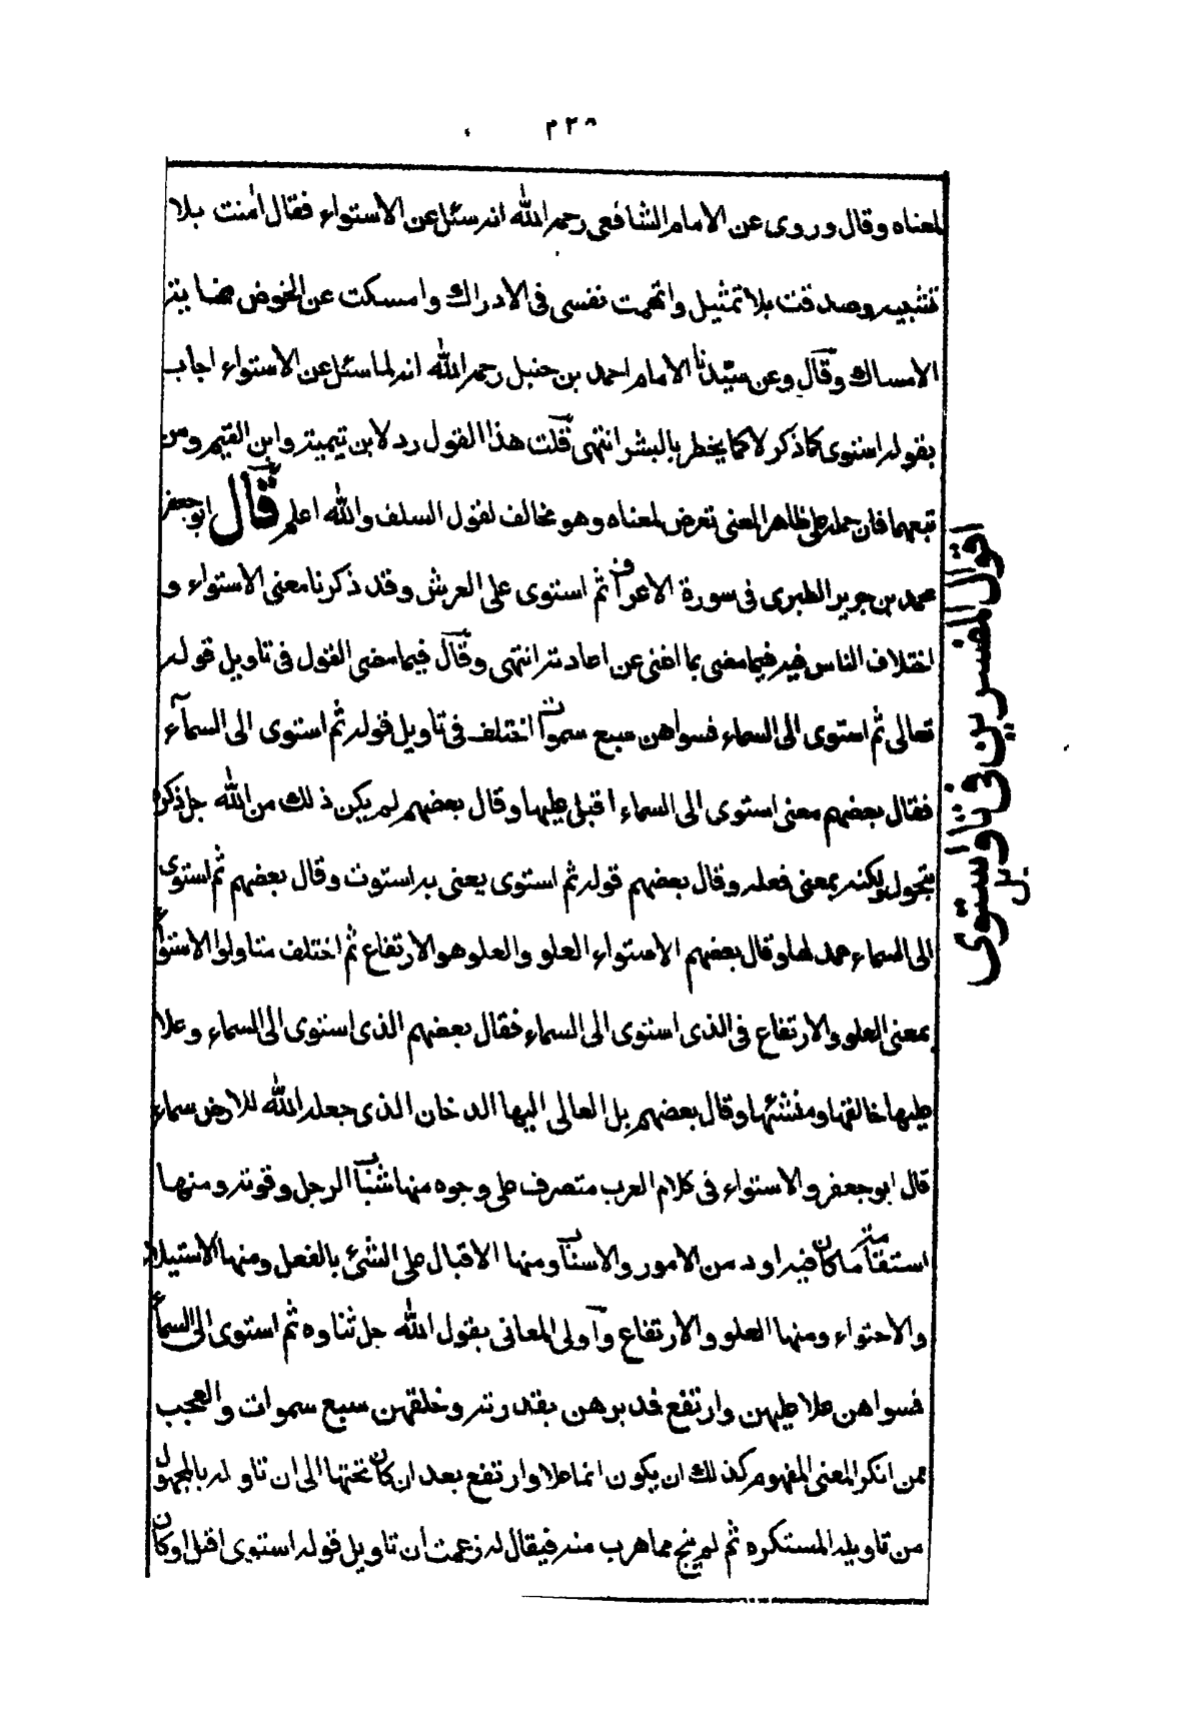 ٢٣٨
لمعناه وقال وروى عن الامام الشافعى رحمه الله انه سئل عن الاستواء فقال امنت بلا
تشبيه وصدقت بلا تمثيل واتهمت نفسى فى الادراك وامسكت عن الخوض
الامساك وقال وعن سيدنا الامام احمد بن حنبل رحمه الله انه لما سئل عن الاستواء اجاب
بقوله استوى كما ذكر لا كما يخطر بالبشر انتهى قلت هذا القول رد لابن تيمية وابن القيم ومن
تبعهما فان حمله على ظاهر المعنى تعرض لمعناه وهو مخالف لقول السلف والله اعلم قال ابو جعفر
محمد بن جرير الطبرى فى سورة الاعراف ثم استوى على العرش وقد ذكرنا معنى الاستواء و
اختلاف الناس فيه فيما مضى بما اغنى عن اعادته انتهى وقال فيما مضى القول فى تاويل قوله
تعالى ثم استوى الى السماء فسواهن سبع سموات اختلف فى تاويل قوله ثم استوى الى السماء
فقال بعضهم معنى استوى الى السماء اقبل عليها وقال بعضهم لم يكن ذلك من الله جل ذكره
بتحول ولكنه بمعنى فعله وقال بعضهم قوله ثم استوى يعنى به استوت وقال بعضهم ثم استوى
الى السماء عمد لها وقال بعضهم الاستواء العلو والعلو هو الارتفاع ثم اختلف متاولوا الاستواء
بمعنى العلو والارتفاع فى الذى استوى الى السماء فقال بعضهم الذى استوى الى السماء وعلا
عليها خالقها ومنشئها وقال بعضهم بل العالى اليها الدخان الذى جعله الله للارض سماء
قال ابو جعفر والاستواء فى كلام العرب متصرف على وجوه منها شباب الرجل وقوته ومنها
استقامة ما كان فيه اود من الامور والاسباب ومنها الاقبال على الشئ بالفعل ومنها الاستيلاء
والاحتواء ومنها العلو والارتفاع واولى المعانى بقول الله جل ثناوه ثم استوى الى السماء
فسواهن علا عليهن وارتفع فدبرهن بقدرته وخلقهن سبع سموات والعجب
ممن انكر المعنى المفهوم كذلك ان يكون انما علا وارتفع بعد ان كان تحتها الى ان تاوله بالمجهول
من تاويله المستكره ثم لم ينج مما هرب منه فيقال له زعمت ان تاويل قوله استوى اقبل اوكان
اقوال المفسرين فى تاويل استوى